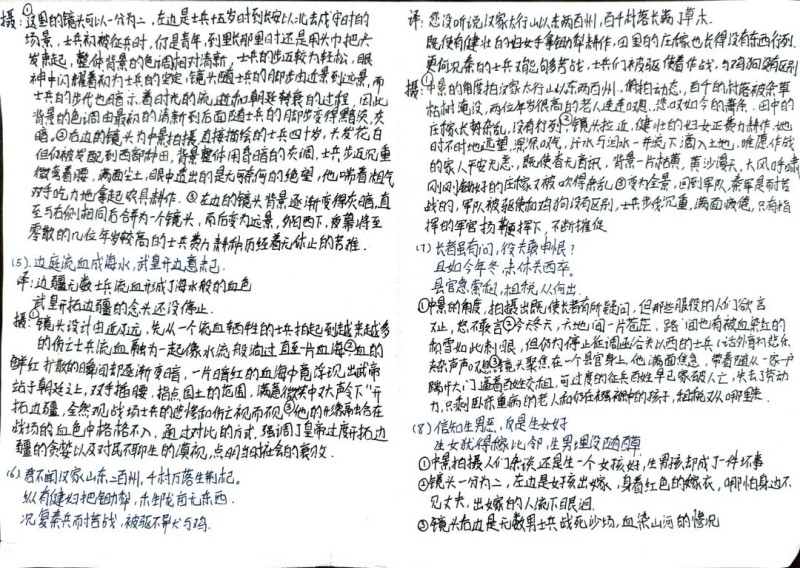 摄:①这里的镜头可以一分为二,左边是士兵十五岁时到长安以北去戍守时的
场景,士兵初被征兵时,仍是青年,到里长那里时还是用头巾把头
发裹起,整体背景的色调相对清新,士兵的步近较为轻松,眼
神中闪耀着初为士兵的坚定,镜头随士兵的脚步由近景到远景,而
士兵的步伐也暗示着时光的流逝和朝廷转衰的过程,因此
背景的色调由最初的清新到后面随士兵的脚步变得黑头,灰
暗。②右边的镜头为中景拍摄,直接描绘的士兵四十岁,头发花白
但们被发配到西部种田,背景整体用昏暗的灰调,士兵步近沉重
微弯着腰,满面尘土,眼中透出的是无奈何的绝望,他喘着粗气
双手吃力地拿起农具耕作。③左边的镜头背景逐渐变得灰暗,直
至与右侧相同后合并为一个镜头,而后变为远景,夕阳西下,夜幕将至
零散的几位年岁较高的士兵费力耕种历经着无休止的苦难.
(5).边庭流血成海水,武皇开边意未已.
译:边疆无数士兵流血形成了海水般的血色
武皇开拓边疆的念头还没停止.
摄:①镜头设计由近及远,先从一个流血牺牲的士兵拍起到越来越多
的伤亡士兵流血融为一起像水流般淌过直至一片血海②血的
鲜红扩散的瞬间却逐渐变暗,一片暗红的血海中竟浮现出武帝
站于朝廷之上,双手插腰,指点国土的范围,满意微笑中又大声令下"开
拓边疆,全然视战场士兵的悲怪和伤亡视而不见③他的形象融合在
战场的血色中格格不入,通过对比的方式,强调了皇帝过度开拓边
疆的贪婪以及对民不聊生的漠视,点明当时社会的衰败.
(6).君不闻汉家山东二百州,千村万落生荆杞.
纵有健妇把锄犁,禾生陇亩无东西.
况复秦兵耐苦战,被驱不异犬与鸡.
译:您没听说汉家太行山以东两百州,百千村落长满了草木.
既使有健壮的妇女手拿锄犁耕作,田里的庄稼也长得没有东西行列.
更何况秦的士兵又能够多苦战,士兵们被驱使着作战,与鸡狗没有区别
摄:①中景的角度拍汉家太行山以东两百州,俯拍动态,百千的村落被杂草
枯树淹没,两位年岁很高的老人连连叹息.悲叹如今的萧条.田中的
庄稼长势杂乱,没有行列.②镜头拉近,健壮的妇女正费力耕作.她
时不时地远望,深深叹气,汗水与泪水一并流下滴入土地,唯愿作战
的家人平安无恙,既使着无音讯,背景一片枯黄,黄沙漫天,大风呼啸
刚刚播种好的庄稼又被吹得杂乱③变为全景,回到军队,秦军是耐苦
战的,军队被驱使如鸡狗没有区别,士兵步伐沉重,满面疲惫,只有指
挥的军官扬鞭挥下,不断摧促
(7)长者虽有问,役夫敢申恨?
且如今年冬,未休关西卒.
县官急索租,租税从何出.
①中景的角度,拍摄出既使长者有所疑问,但那些服役的人们欲言
又止,您不敢言②今冬天,大地间一片苍茫,踏雪间也有被血染红的
初雪如此刺眼,但仍为停止征调函谷关以西的士兵(话外音和悲乐
夹杂声效)③镜头聚焦在一个县官身上,他满面焦急,带着随从一家一户
踹开大门逼着百姓交租,可过度的征兵百姓早已家破人亡,失去了劳动
力,只剩卧床重病的老人和仍在襁褓中的孩子,租税又从哪里来.
(8)信知生男恶,反是生女好
生女犹得嫁比邻,生男埋没随百草
①中景拍摄人们杂谈还是生一个女孩好,生男孩却成了一件坏事
②镜头一分为二,左边是女孩出嫁,身着红色的嫁衣,哪怕身边不
见丈夫,出嫁的人流下眼泪.
③镜头右边是无数男士兵战死沙场,血染山河的惨况